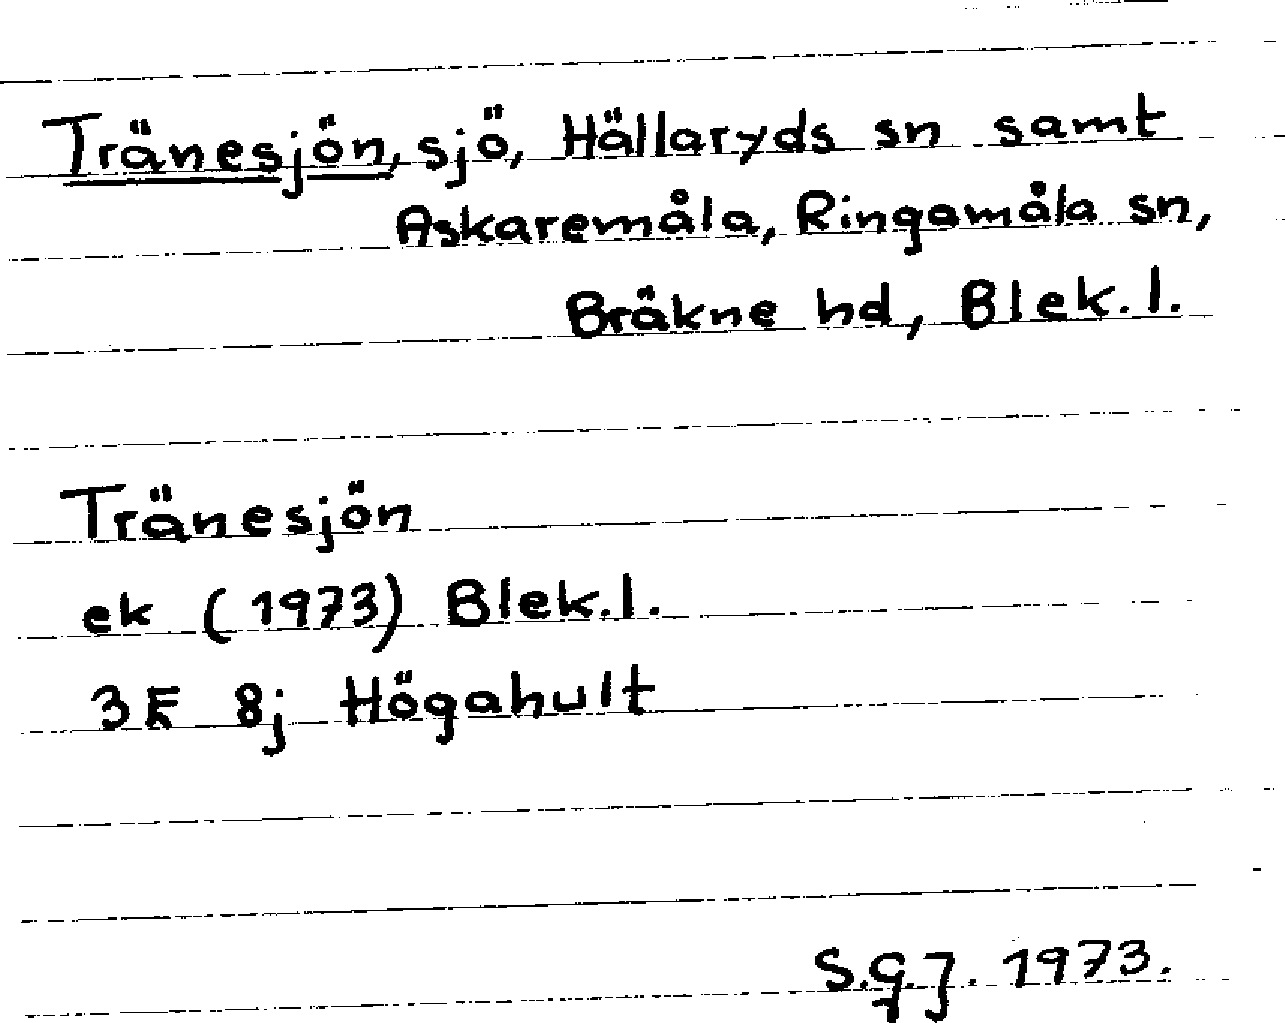 Tränesjön, sjö, Hällaryds sn samt
Askaremåla, Ringamåla sn,
Bräkne hd, Blek.l.
Tränesjön
ek (1973) Blek.l.
3F 8j Högahult
S.G.J. 1973.